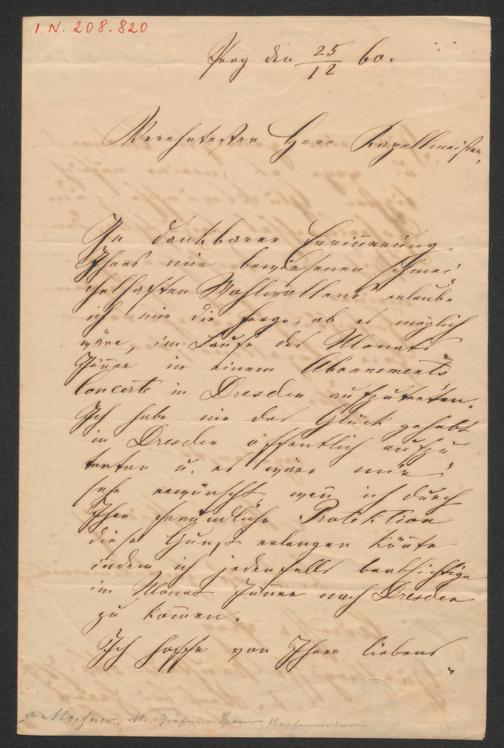 I. N. 208.820
Prag den 25/12 60.
Verehrtester Herr Kapellmeister,
In dankbarer Erinnerung
Ihres mir bewiesenen schmei„
chelhaften Wohlwollens erlaube
ich mir die Frage, ob es möglich
wäre, im Laufe des Monats
Jänner in einem Abonnements„
Concerte in Dresden aufzutreten.
Ich habe nie das Glück gehabt
in Dresden öffentlich aufzu„
treten u. es wäre mir
sehr erwünscht wen̄ ich durch
Ihre freundliche Protektion
diese Gunst erlangen kön̄te
indem ich jedenfalls beabsichtige
im Monat Jänner nach Dresden
zu kom̄en.
Ich hoffe von Ihrer liebens„
v. Moesner M. Gräfin v. Spaur